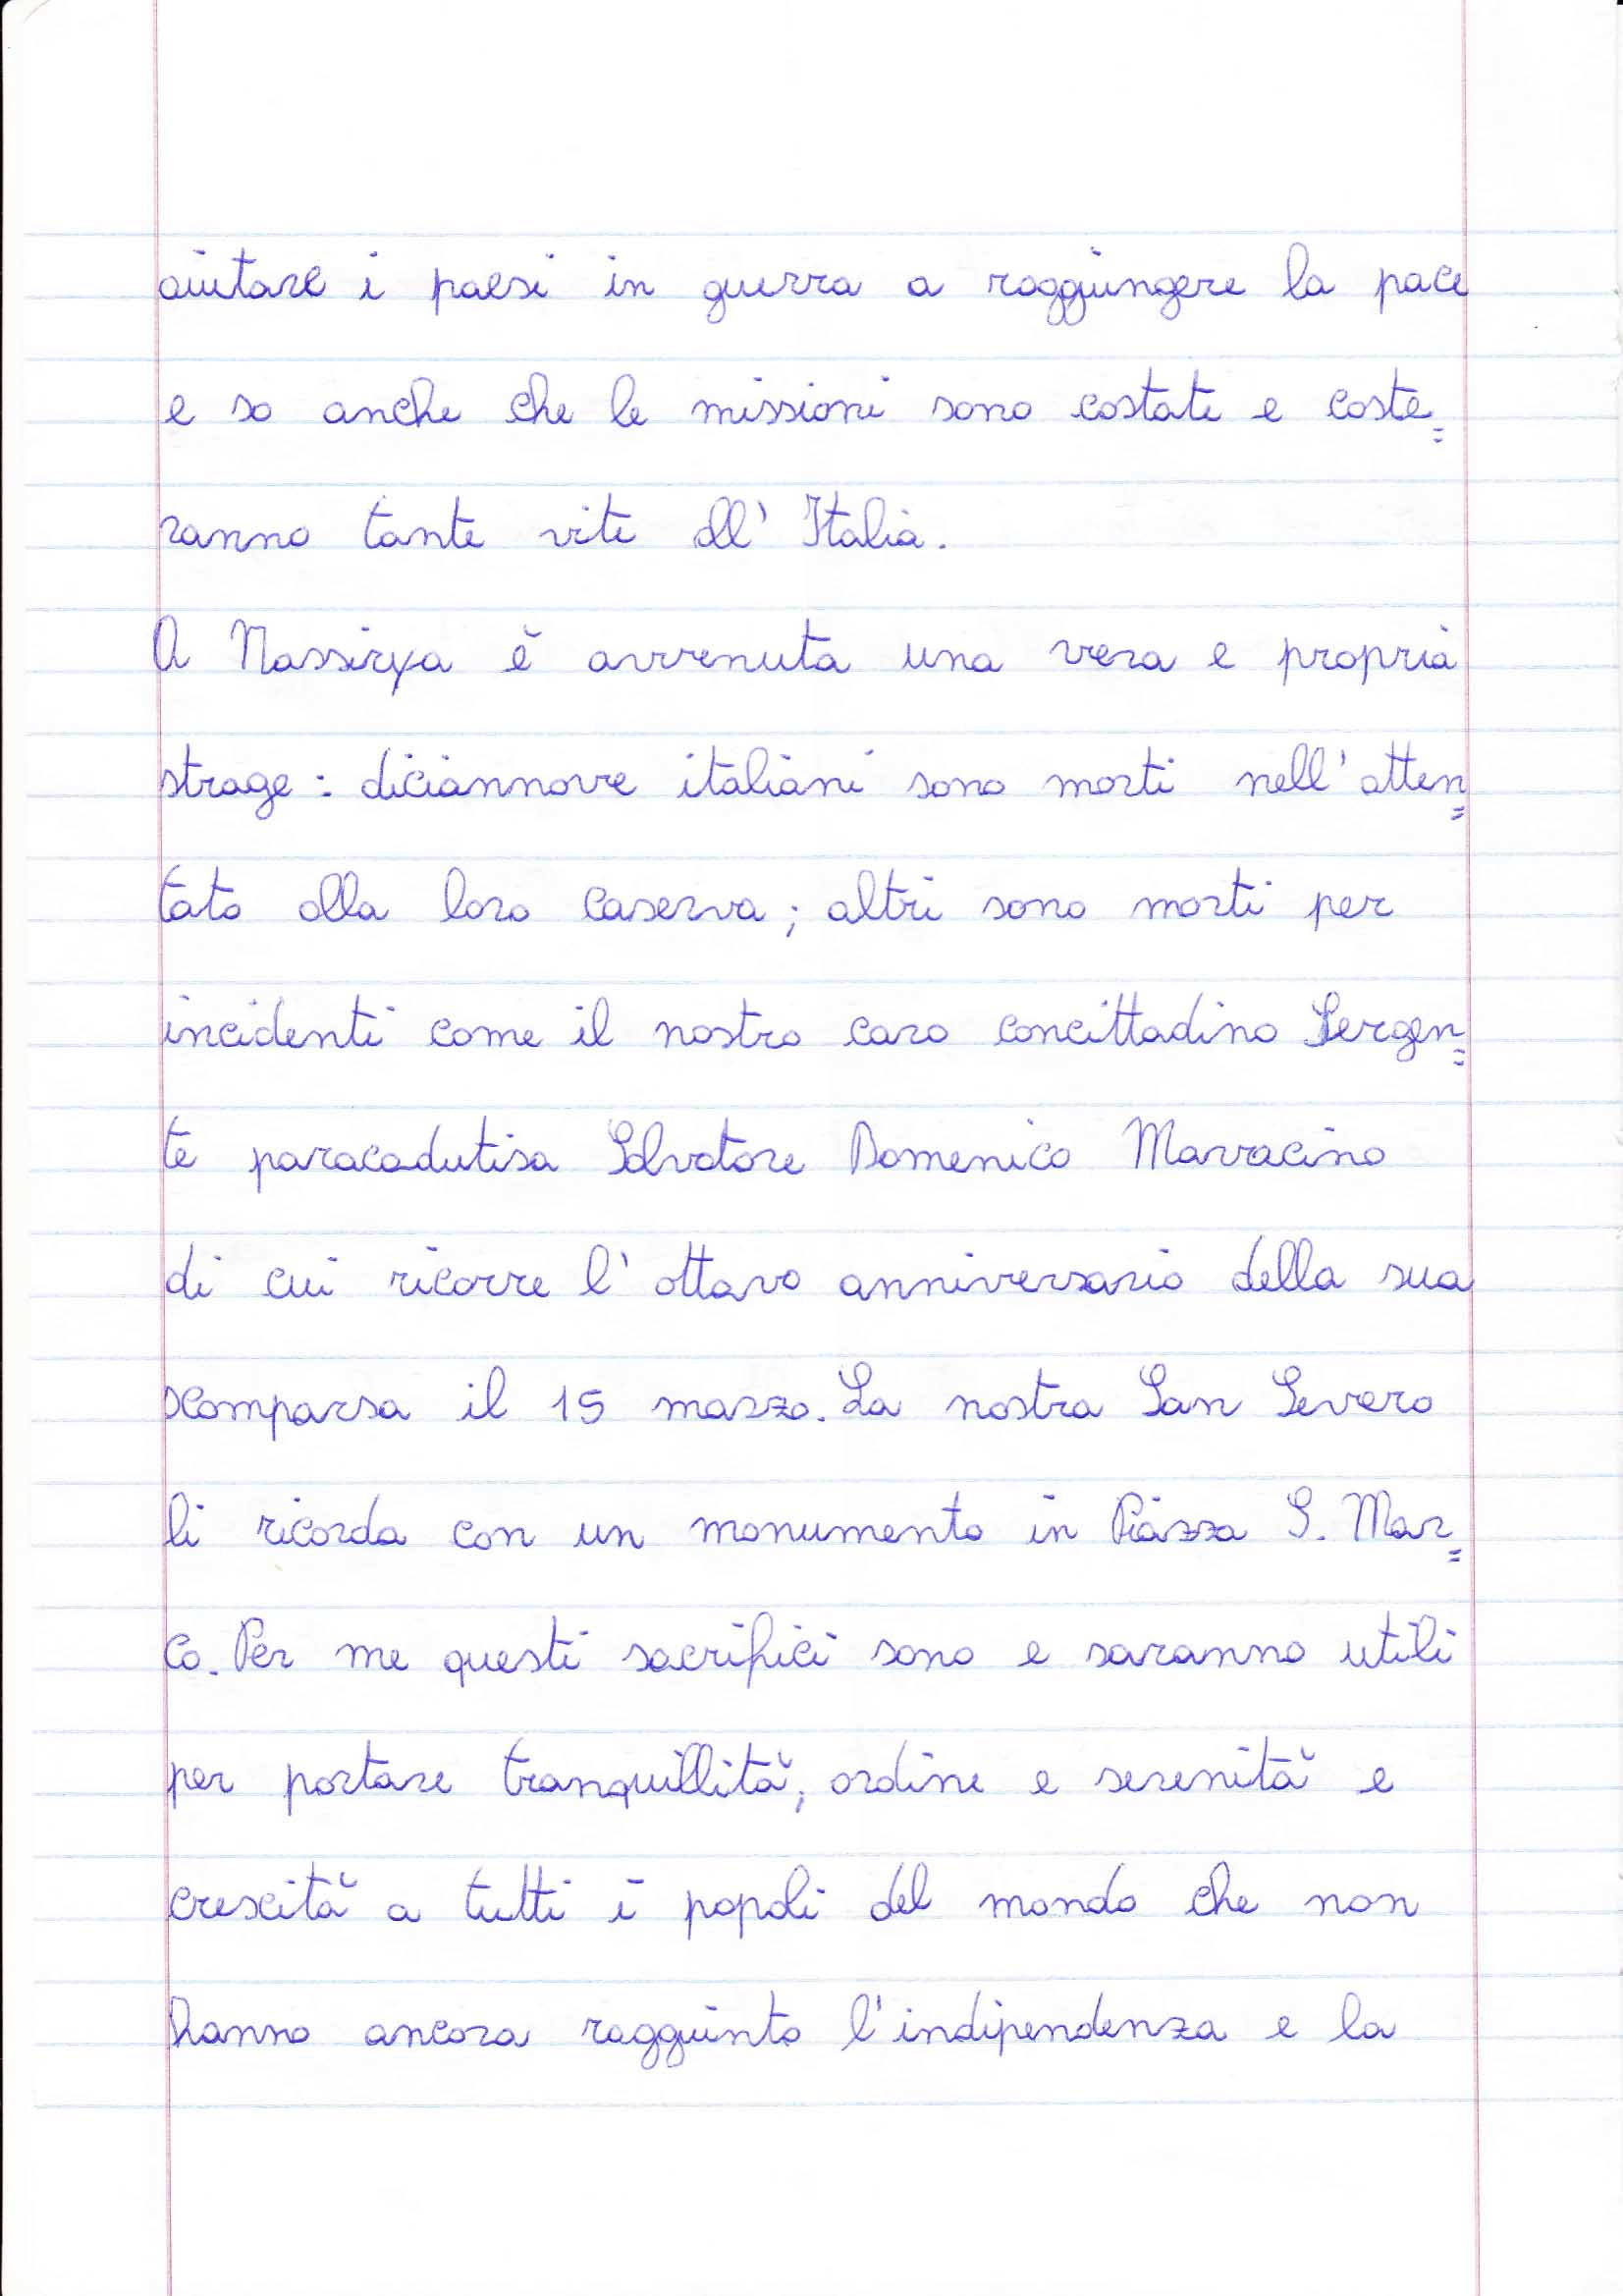 aiutare i paesi in guerra a raggiungere la pace
e so anche che le missioni sono costate e coste=
ranno tante vite all'Italia.
A Nassirya è avvenuta una vera e propria
strage: diciannove italiani sono morti nell'atten=
tato alla loro caserva; altri sono morti per
incidenti come il nostro caro concittadino Sergen=
te paracadutisa Salvatore Domenico Marracino
di cui ricorre l'ottavo anniversario della sua
scomparsa il 15 marzo. La nostra San Severo
li ricorda con un monumento in Piazza S. Mar=
co. Per me questi sacrifici sono e saranno utili
per portare tranquillità, ordine e serenità e
crescità a tutti i popoli del mondo che non
hanno ancora raggiunto l'indipendenza e la